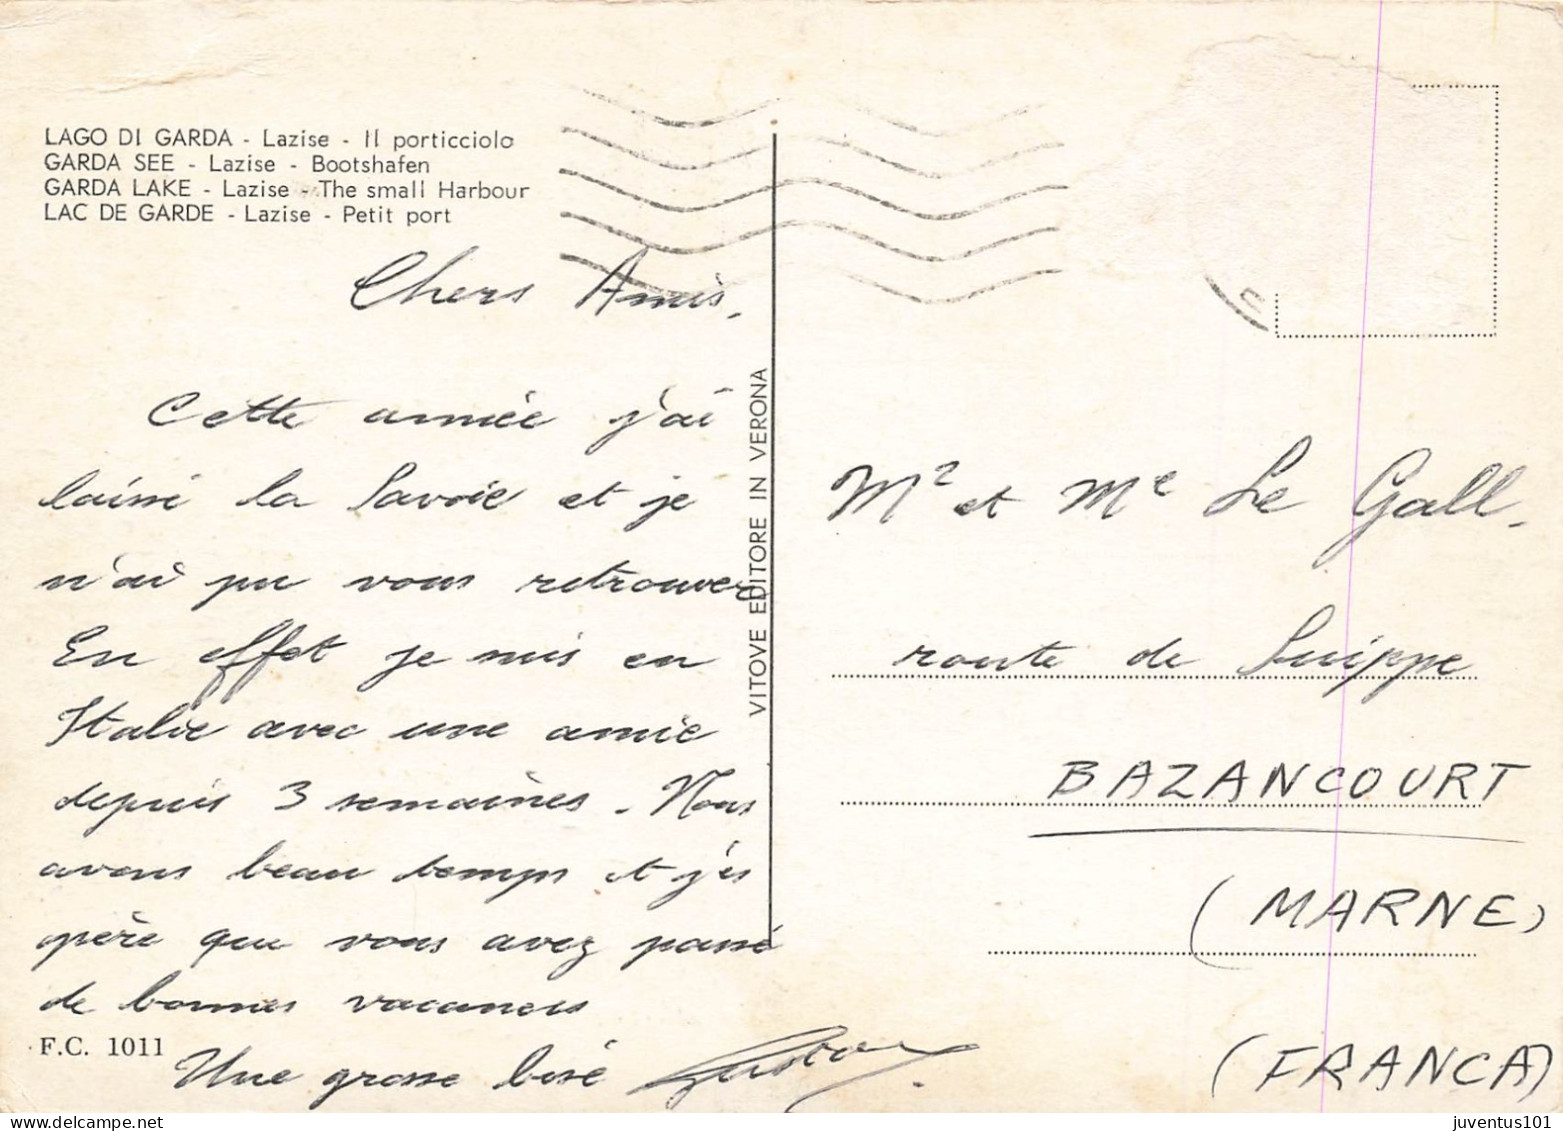 LAGO DI GARDA - Lazise - Il porticciolo
GARDA SEE - Lazise - Bootshafen
GARDA LAKE - Lazise - The small Harbour
LAC DE GARDE - Lazise - Petit port
Chers Amis,
Cette année j'ai
laissé la Savoie et je
n'ai pu vous retrouver
En effet je suis en
Italie avec une amie
depuis 3 semaines. Nous
avons beau temps et j'es
père que vous avez passé
de bonnes vacances
Une grosse bisé
F.C. 1011
VITOVE EDITORE IN VERONA
Mr et Me Le Gall.
route de Suippe
BAZANCOURT
(MARNE)
(FRANCA)
juventus101